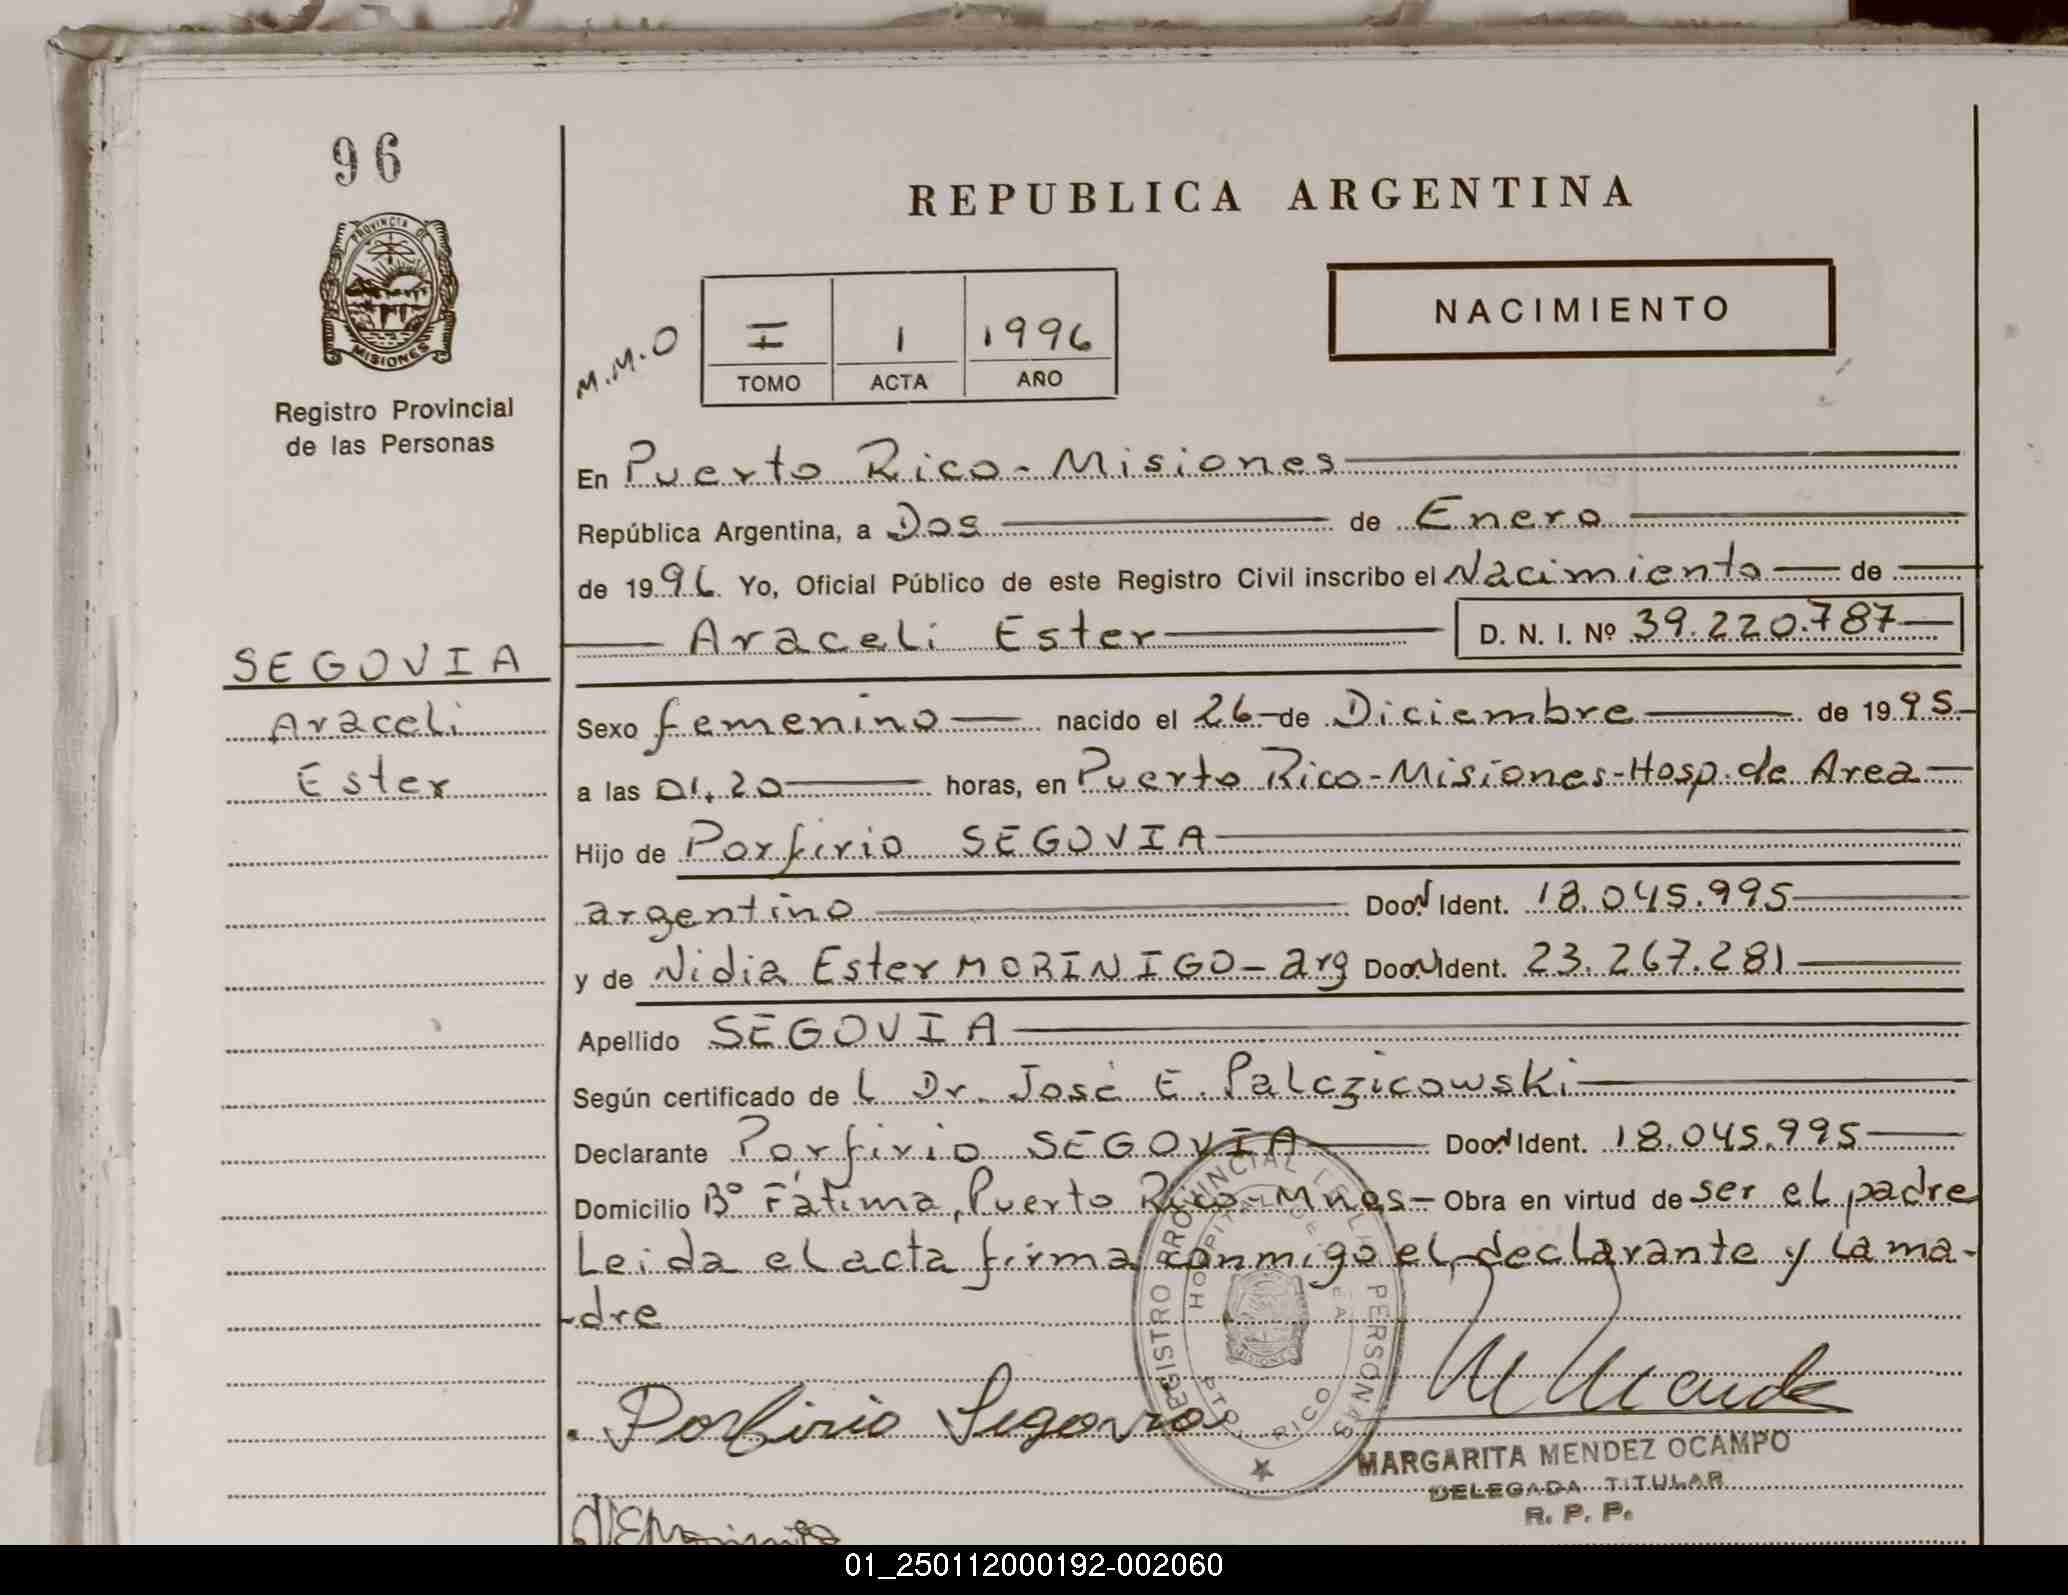 96
PROVINCIA DE
MISIONES
Registro Provincial
de las Personas
REPUBLICA ARGENTINA
NACIMIENTO
M.M.O
I 1 1996
TOMO ACTA AÑO
En Puerto Rico - Misiones
República Argentina, a Dos de Enero
de 1996 Yo, Oficial Público de este Registro Civil inscribo el Nacimiento de
Araceli Ester D. N. I. Nº 39.220.787
SEGOVIA
Araceli
Ester
Sexo femenino nacido el 26 de Diciembre de 1995
a las 01,20 horas, en Puerto Rico-Misiones-Hosp. de Area
Hijo de Porfirio SEGOVIA
argentino Doc. Ident. 18.045.995
y de Nidia Ester MORINIGO - arg Doc. Ident. 23.267.281
Apellido SEGOVIA
Según certificado de l Dr. José E. Palczicowski
Declarante Porfirio SEGOVIA Doc. Ident. 18.045.995
Domicilio Bº Fátima, Puerto Rico - Mnes - Obra en virtud de ser el padre
Leida el acta firma conmigo el declarante y la ma-
-dre
REGISTRO PROVINCIAL PERSONAS
HOSPITAL DE AREA
PTO. RICO
MISIONES
Porfirio Segovia
MARGARITA MENDEZ OCAMPO
DELEGADA TITULAR
R. P. P.
01_250112000192-002060